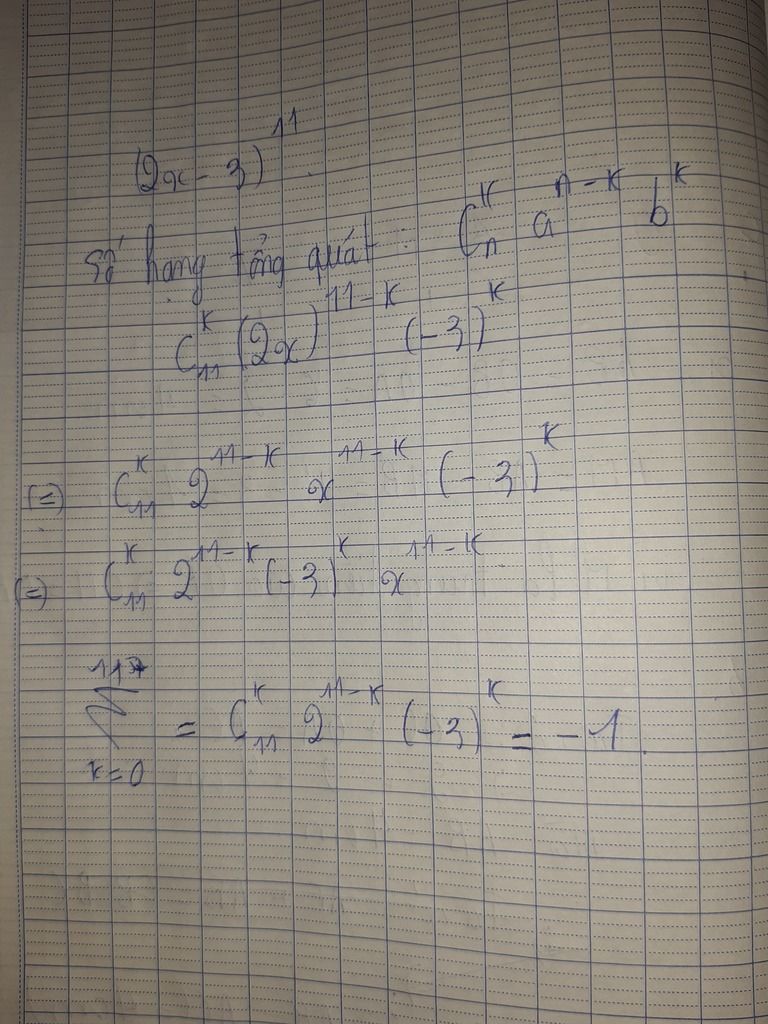 (2x - 3)^11
Số hạng tổng quát : C_n^k a^{n-k} b^k
C_11^k (2x)^{11-k} (-3)^k
(=) C_11^k 2^{11-k} x^{11-k} (-3)^k
(=) C_11^k 2^{11-k} (-3)^k x^{11-k}
∑_{k=0}^{11} = C_11^k 2^{11-k} (-3)^k = -1.